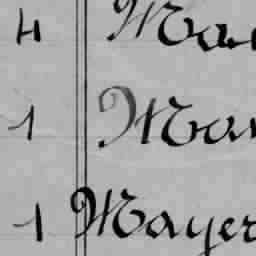 4 Mar
1 Mar
1 Mayer